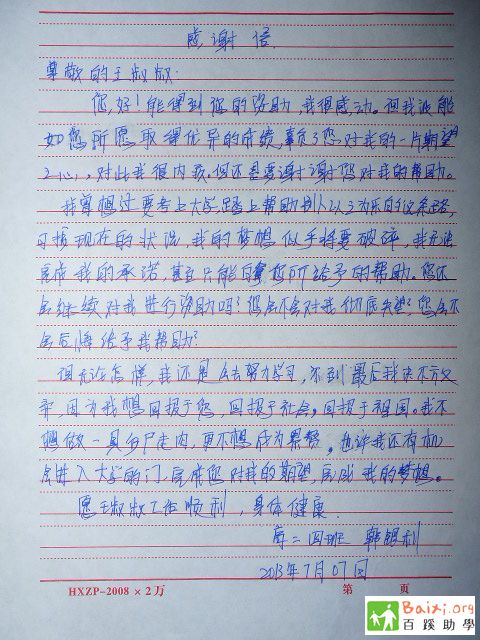 感谢信
尊敬的王叔叔:
您,好!能得到您的资助,我很感动。但我没能
如您所愿取得优异的成绩,辜负了您对我的一片期望
之心,对此我很内疚,但还是要谢谢您对我的帮助。
我曾想过要考上大学,踏上帮助别人以之为乐的这条路,
可按现在的状况,我的梦想似乎将要破碎,我无法
完成我的承诺,甚至只能白拿您所给予的帮助。您还
会继续对我进行资助吗?您会不会对我彻底失望?您会不
会后悔给予我帮助?
但无论怎样,我还是会去努力学习,不到最后我决不放
弃,因为我想回报于您,回报于社会,回报于祖国。我不
想做一具行尸走肉,更不想成为累赘。也许我还有机
会进入大学的门,完成您对我的期望,完成我的梦想。
愿王叔叔工作顺利,身体健康
高二四班 韩银利
2013年7月07日
HXZP-2008×2万 第 页
Baixi.org
百蹊助學